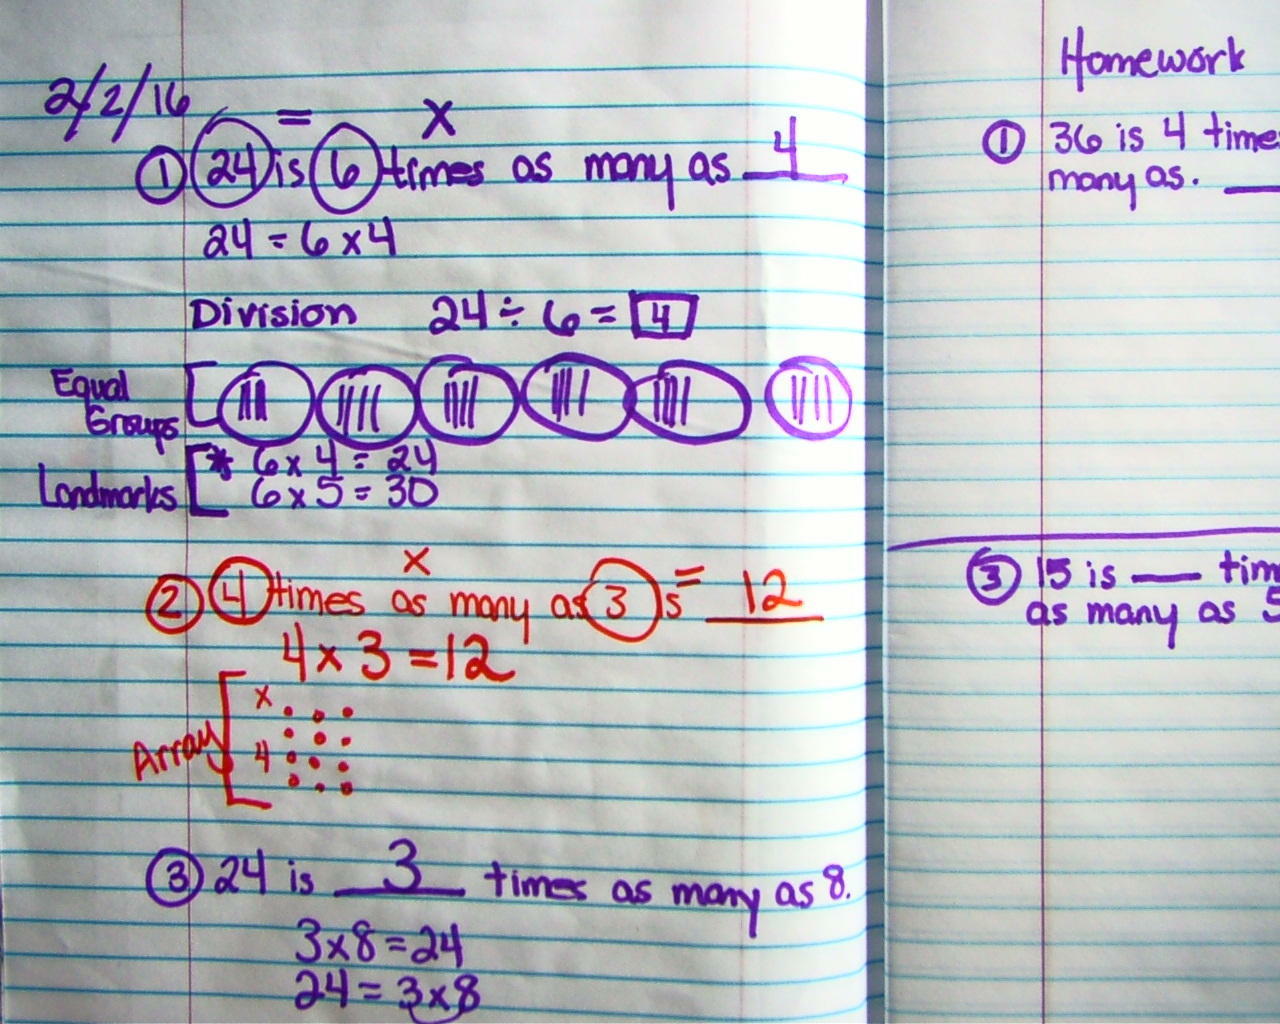 2/2/16
= x
① 24 is 6 times as many as 4
24 = 6 x 4
Division 24 ÷ 6 = 4
Equal
Groups
* 6 x 4 = 24
Landmarks 6 x 5 = 30
x =
② 4 times as many as 3 is 12
4 x 3 = 12
x
Array 4
③ 24 is 3 times as many as 8.
3 x 8 = 24
24 = 3 x 8
Homework
① 36 is 4 time
many as. __
③ 15 is __ tim
as many as 5